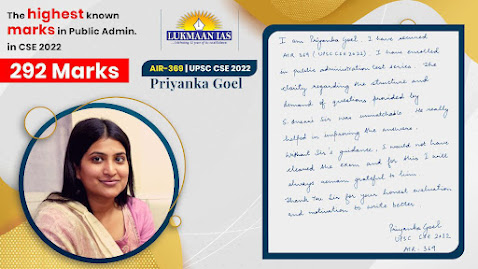 The highest known
marks in Public Admin.
in CSE 2022
292 Marks
LUKMAAN IAS
AIR-369 | UPSC CSE 2022
Priyanka Goel
I am Priyanka Goel I have secured
AIR 369 (UPSC CSE 2022). I have enrolled
in public administration test series. The
clarity regarding the structure and
demand of questions provided by
S. Ansari Sir was unmatchable. He really
helped in improving the answers.
Without Sir's guidance, I would not have
cleared the exam and for this I will
always remain grateful to him.
Thank You Sir for your honest evaluation
and motivation to write better
Priyanka Goel
UPSC CSE 2022
AIR - 369